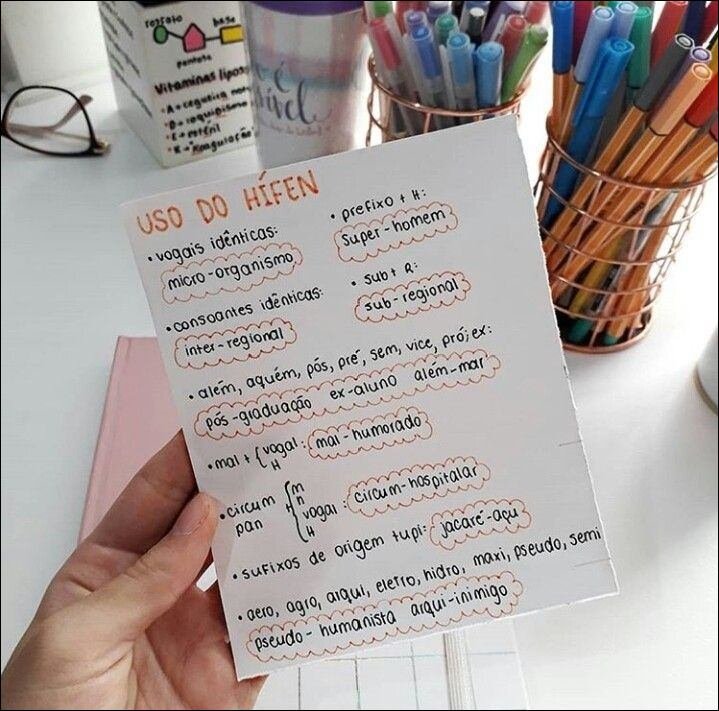 fosfato
base
pentose
Vitaminas lipos
A =
D =
E =
K =
USO DO HÍFEN
• vogais idênticas:
micro-organismo
• prefixo + H:
super-homem
• consoantes idênticas:
inter-regional
• sub + R:
sub-regional
• além, aquém, pós, pré, sem, vice, pró, ex:
pós-graduação ex-aluno além-mar
• mal + { vogal : mal-humorado
H
• circum
pan
+ { m
n
vogal : circum-hospitalar
H
• sufixos de origem tupi: jacaré-açu
• aero, agro, arqui, eletro, hidro, maxi, pseudo, semi
pseudo-humanista arqui-inimigo